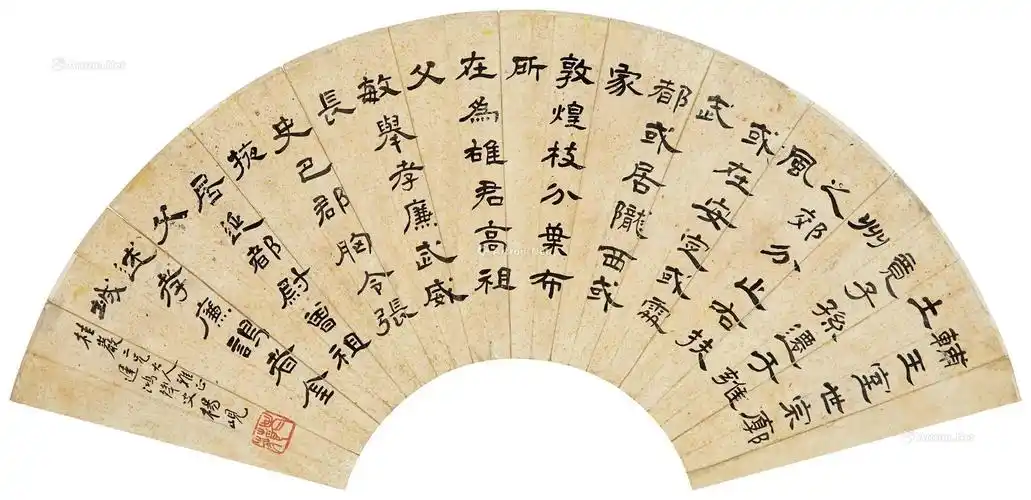 輔王室世宗廓
土
竟子孫遷于雍
州
之郊分止右扶
風
或在安定或處
武
都或居隴西或
家
敦煌枝分葉布
所
在為雄君高祖
父
敏舉孝廉武威
長
史巴郡朐令張
掖
居延都尉曾祖
父
述孝廉謁者金
城
桂巖二兄大人雅正
楊峴